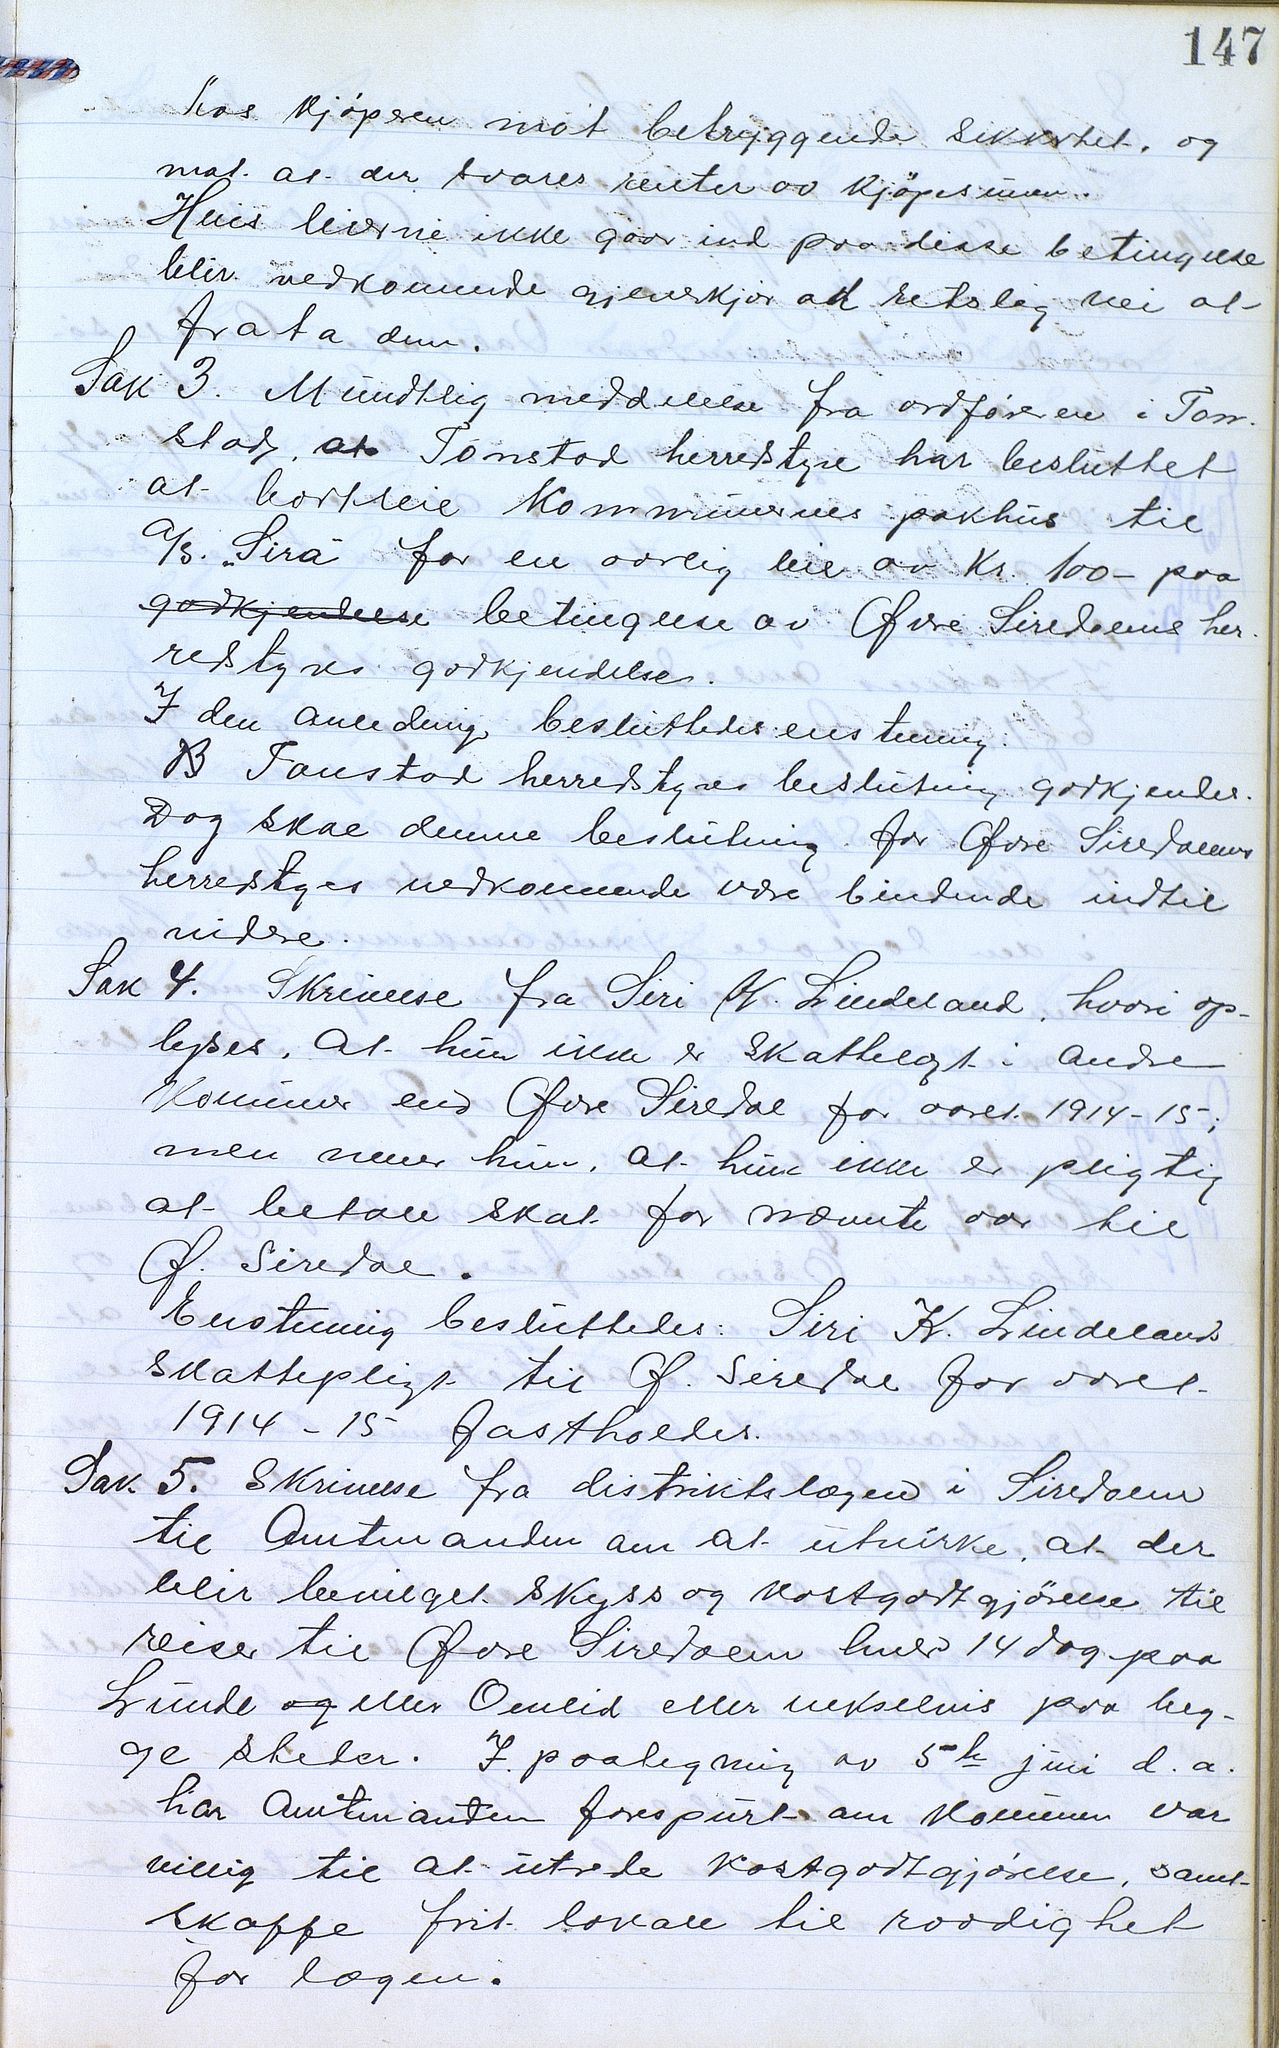 147
hos kjøperen mot betryggende sikkerhet, og
mot at der svares renter av kjøpesummen.
Hvis leierne ikke gaar ind paa disse betingelse
blir vedkommende gjenerkjør ad retslig vei at
frata dem.
Sak 3. Mundtlig meddelelse fra ordføreren i Ton-
stad, at Tonstad herredstyre har besluttet
at bortleie kommunernes pakhus til
A/S. "Sira" for en aarlig leie av Kr. 100- paa
godkjendelse betingelse av Øvre Siredalens her-
redstyres godkjendelse.
I den anledning besluttedes enstemmig:
Tonstad herredstyres beslutning godkjendes.
Dog skal denne beslutning for Øvre Siredalens
herredstyres vedkommende være bindende indtil
videre.
Sak 4. Skrivelse fra Siri K. Lindeland, hvori op-
lyses, at hun ikke er skattelagt i andre
kommuner end Øvre Siredal for aaret 1914-15;
men mener hun, at hun ikke er pligtig
at betale skat for nævnte aar til
Ø. Siredal.
Enstemmig besluttedes: Siri K. Lindelands
skattepligt til Ø. Siredal for aaret
1914-15 fastholdes.
Sak 5. Skrivelse fra distriktslægen i Siredalen
til Amtmanden om at utvirke, at der
blir bevilget skyss og kostgodtgjørelse til
reiser til Øvre Siredalen hver 14 dag paa
Lunde og eller Omlid eller vekselvis paa beg-
ge steder. I paategning av 5te juni d. a.
har Amtmanden forespurt om kommunen var
villig til at utrede kostgodtgjørelse, samt
skaffe frit lokale til raadighet
for lægen.